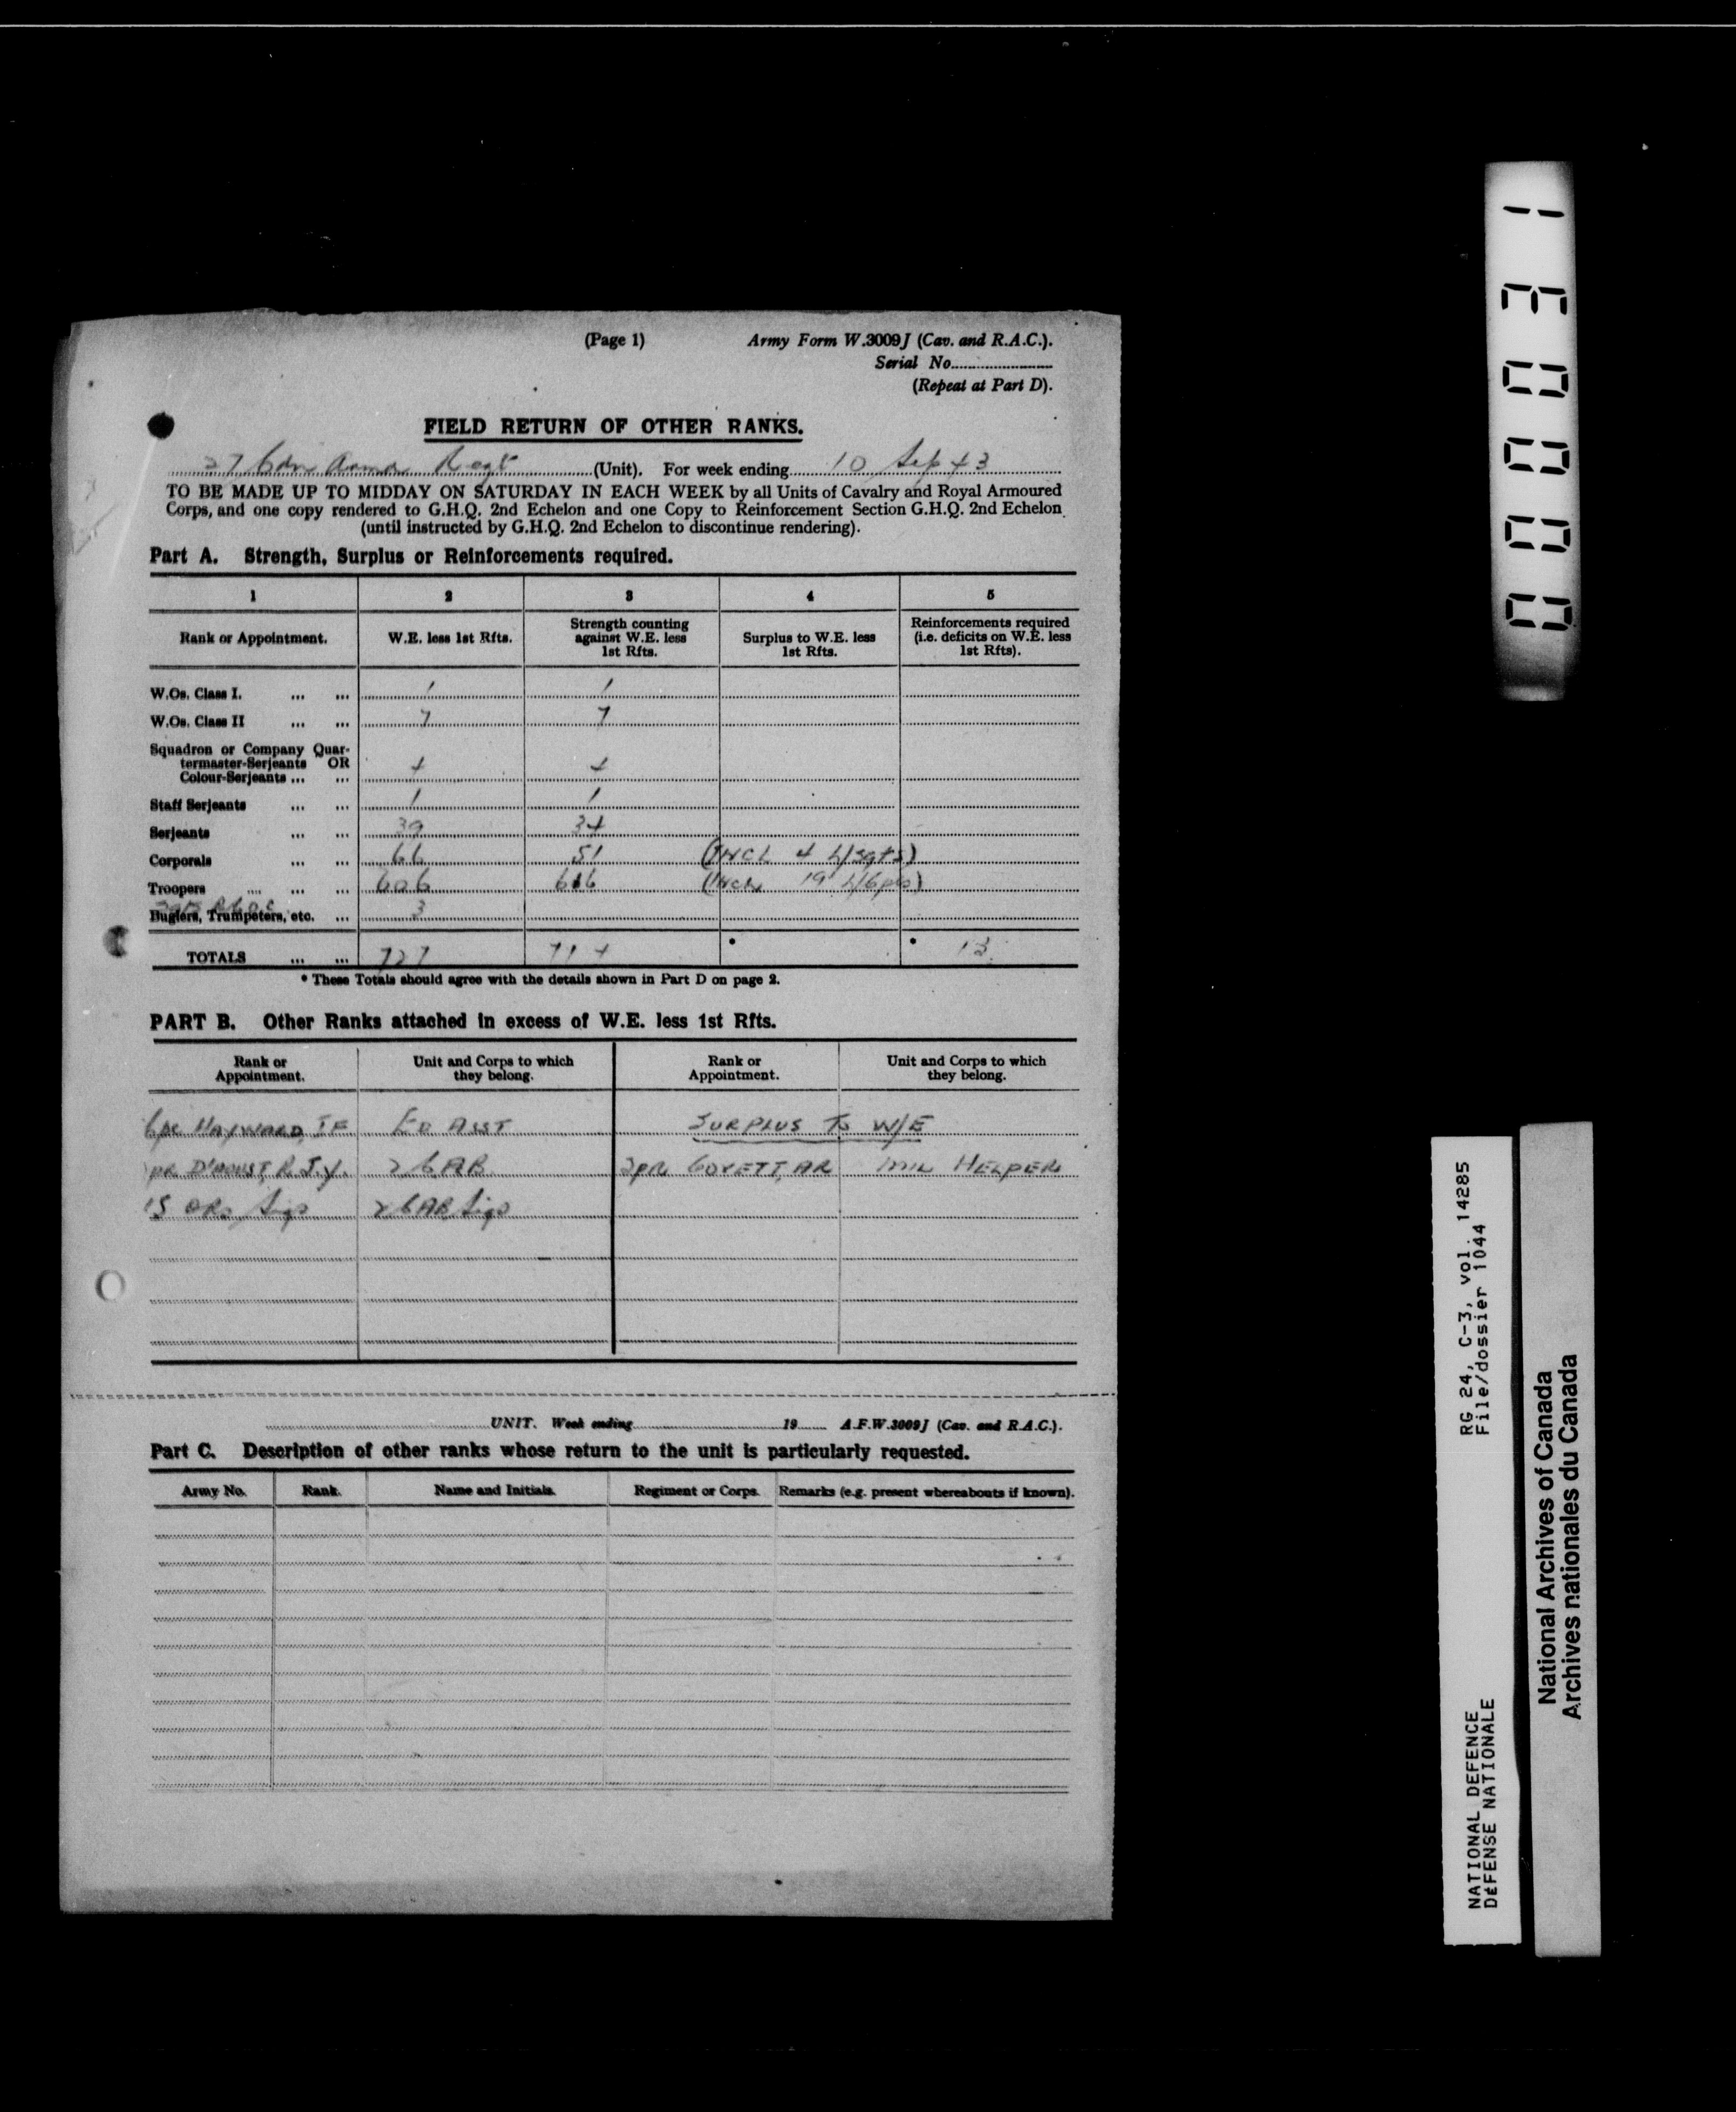 (Page 1) Army Form W.3009J (Cav. and R.A.C.).
Serial No.
(Repeat at Part D).
FIELD RETURN OF OTHER RANKS.
27 Cdn Armd Regt (Unit). For week ending 10 Sep 43
TO BE MADE UP TO MIDDAY ON SATURDAY IN EACH WEEK by all Units of Cavalry and Royal Armoured
Corps, and one copy rendered to G.H.Q. 2nd Echelon and one Copy to Reinforcement Section G.H.Q. 2nd Echelon
(until instructed by G.H.Q. 2nd Echelon to discontinue rendering).
Part A. Strength, Surplus or Reinforcements required.
1 2 3 4 5
Rank or Appointment. W.E. less 1st Rfts. Strength counting against W.E. less 1st Rfts. Surplus to W.E. less 1st Rfts. Reinforcements required (i.e. deficits on W.E. less 1st Rfts).
W.Os. Class I. ... ... 1 1
W.Os. Class II ... ... 7 7
Squadron or Company Quar-
termaster-Serjeants OR 4 4
Colour-Serjeants ... ...
Staff Serjeants ... ... 1 1
Serjeants ... ... 39 34
Corporals ... ... 66 51 (Incl 4 L/Sgts)
Troopers ... ... ... 606 616 (Incl 19 L/Cpls)
Buglers, Trumpeters, etc. ... 3
TOTALS ... ... 727 714 * * 13
* These Totals should agree with the details shown in Part D on page 2.
PART B. Other Ranks attached in excess of W.E. less 1st Rfts.
Rank or Appointment. Unit and Corps to which they belong. Rank or Appointment. Unit and Corps to which they belong.
Cpl HAYWARD, ED ASST SURPLUS TO W/E
2 CAB HELPER
15 ORs Sigs 2 CAB Sigs
UNIT. Week ending 19 A.F.W.3009J (Cav. and R.A.C.).
Part C. Description of other ranks whose return to the unit is particularly requested.
Army No. Rank. Name and Initials. Regiment or Corps. Remarks (e.g. present whereabouts if known).
000031
RG 24, C-3, vol. 14285
File/dossier 1044
NATIONAL DEFENCE
DéFENSE NATIONALE
National Archives of Canada
Archives nationales du Canada